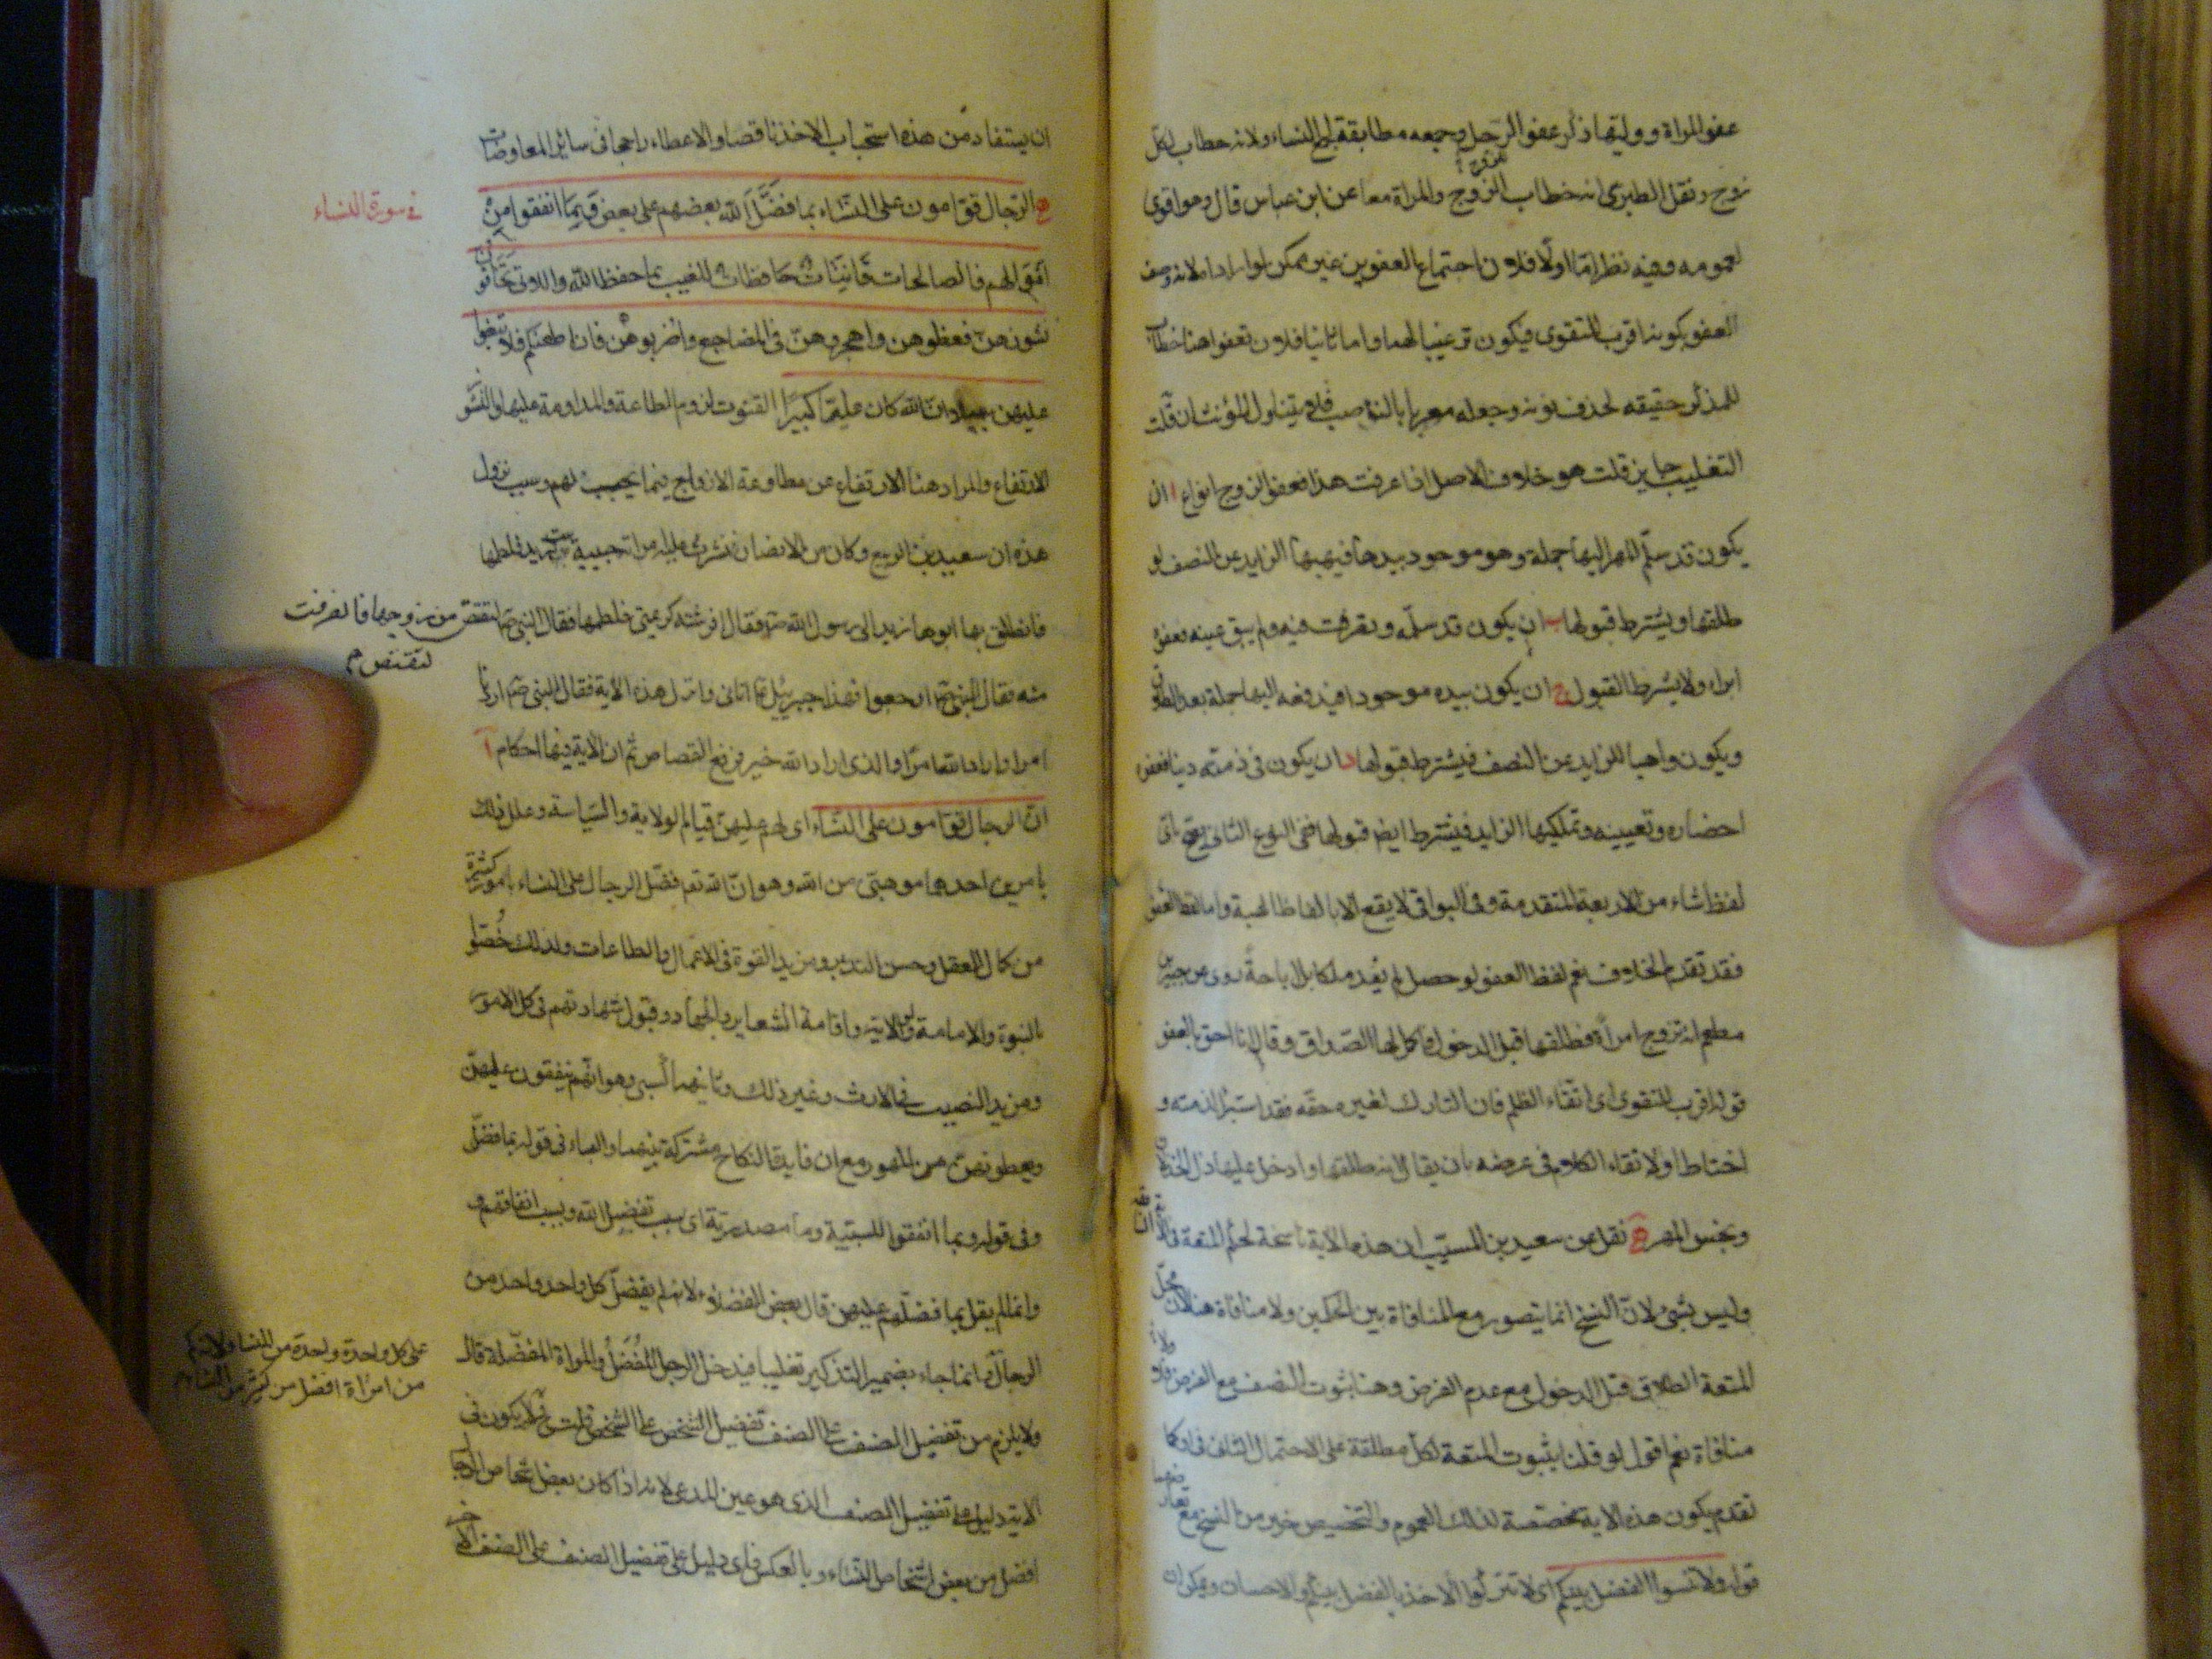 عفو المراة ووليها ذكر عفو الرجل وجمعه مطابقة لجمع النساء ولانه خطاب لكل
زوج ونقل الطبرى انه خطاب الزوج والمراة معا عن ابن عباس قال وهو اقوى
لعمومه وفيه نظر اما اولا فلان اجتماع العفوين غير ممكن لو ارادا ولانه وصف
العفو بكونه اقرب للتقوى فيكون ترغيبا لهما واما ثانيا فلان تعفوا هنا خطاب
للمذكر حقيقه لحذف نونه وجعله معربا بالنواصب فلا يتناول المؤنث ان قلت
التغليب جايز قلت هو خلاف الاصل اذا عرفت هذا فعفو الزوج انواع ا ان
يكون قد سلم المهر اليها جملة وهو موجود بيدها فيهبها الزايد عن النصف لو
طلقها ويشترط قبولها ب ان يكون قد سلمه وتصرفت فيه ولم يبق عينه فعفوه
ابراء ولا يشترط القبول ج ان يكون بيده موجودا فيدفعه اليها جملة بعد الطلاق
ويكون واهبا للزايد عن النصف فيشترط قبولها د ان يكون فى ذمته دينا فعفوه
احضاره وتعيينه وتمليكها الزايد فيشترط ايضا قبولها ففى النوع الثانى يقع باى
لفظ شاء من الاربعة المتقدمة وفى البواقى لا يقع الا بالفاظ الهبة واما لفظ العفو
فقد تقدم الخلاف نعم لفظ العفو لو حصل لم يفد ملكا بل اباحة روى عن جبير بن
مطعم انه تزوج امراة فطلقها قبل الدخول فاكمل لها الصداق وقال انا احق بالعفو
قوله اقرب للتقوى اى اتقاء الظلم فان التارك لغيره حقه فقد استبرأ لذمته و
احتاط او لاتقاء الكلام فى عرضه بان يقال انه طلقها وادخل عليها ذل الخذلان
وبخس المهر ح نقل عن سعيد بن المسيب ان هذه الاية ناسخة لحكم المتعة فى
وليس بشئ لان النسخ انما يتصور مع المنافاة بين الحكمين ولا منافاة هنا لان محل
المتعة الطلاق قبل الدخول مع عدم الفرض وهنا ثبوت النصف مع الفرض فلا
منافاة نعم اقول لو قلنا بثبوت المتعة لكل مطلقة على الاحتمال الثانى كما
تقدم يكون هذه الاية مخصصة لذلك العموم والتخصيص خير من النسخ مع
قوله ولا تنسوا الفضل بينكم اى لا تتركوا الاخذ بالفضل بينكم والاحسان ويمكن ان
ان يستفاد من هذه استحباب الاخذ ناقصا والاعطاء راجحا فى سائر المعاوضات
فى سورة النساء
ه الرجال قوامون على النساء بما فضل الله بعضهم على بعض وبما انفقوا من
اموالهم فالصالحات قانتات حافظات للغيب بما حفظ الله واللاتى تخافون
نشوزهن فعظوهن واهجروهن فى المضاجع واضربوهن فان اطعنكم فلا تبغوا
عليهن سبيلا ان الله كان عليما كبيرا القنوت لزوم الطاعة والمداومة عليها والنشوز
الارتفاع والمراد هنا الارتفاع عن مطاوعة الازواج فيما يجب لهم وسبب نزول
هذه ان سعيد بن الربيع وكان من الانصار نشزت عليه امراته حبيبة بنت زيد فلطمها
فانطلق بها ابوها زيد الى رسول الله فقال افرشته كريمتى فلطمها فقال النبى لتقتص من زوجها فانصرفت
لتقتص
منه فقال النبى ارجعوا فهذا جبرئيل اتانى وانزل هذه الاية فقال النبى اردنا
امرا واراد الله امرا والذى اراد الله خير فرفع القصاص ثم ان الاية فيها احكام ا
ان الرجال قوامون على النساء اى لهم عليهن قيام الولاية والسياسة وعلل ذلك
بامرين احدهما موهبتى من الله وهو ان الله تعه فضل الرجال على النساء بامور كثيرة
من كمال العقل وحسن التدبير ومزيد القوة فى الاعمال والطاعات ولذلك خصوا
بالنبوة والامامة والولاية واقامة الشعاير والجهاد وقبول شهادتهم فى كل الامور
ومزيد النصيب فى الارث وغير ذلك وثانيهما كسبى وهو انهم ينفقون عليهن
ويعطونهن المهور مع ان فايدة النكاح مشتركة بينهما والباء فى قوله بما فضل
وفى قوله وبما انفقوا للسببية وما مصدرية اى بسبب تفضيل الله وبسبب انفاقهم و
وانما لم يقل بما فضلهم عليهن قال بعض الفضلاء لانه لم يفضل كل واحد واحد من
الرجال على كل واحدة واحدة من النساء لانه كم
من امراة افضل من كثير من الرجال
وانما جاء بضمير التذكير تغليبا فيدخل الرجل المفضل والمراة المفضلة قال
ولا يلزم من تفضيل الصنف على الصنف تفضيل الشخص على الشخص قلت فلا يكون فى
الاية دليل على تفضيل الصنف الذى هو عين المدعى لانه اذا كان بعض اشخاص الرجال
افضل من بعض اشخاص النساء وبالعكس فاى دليل على تفضيل الصنف على الصنف الاخر